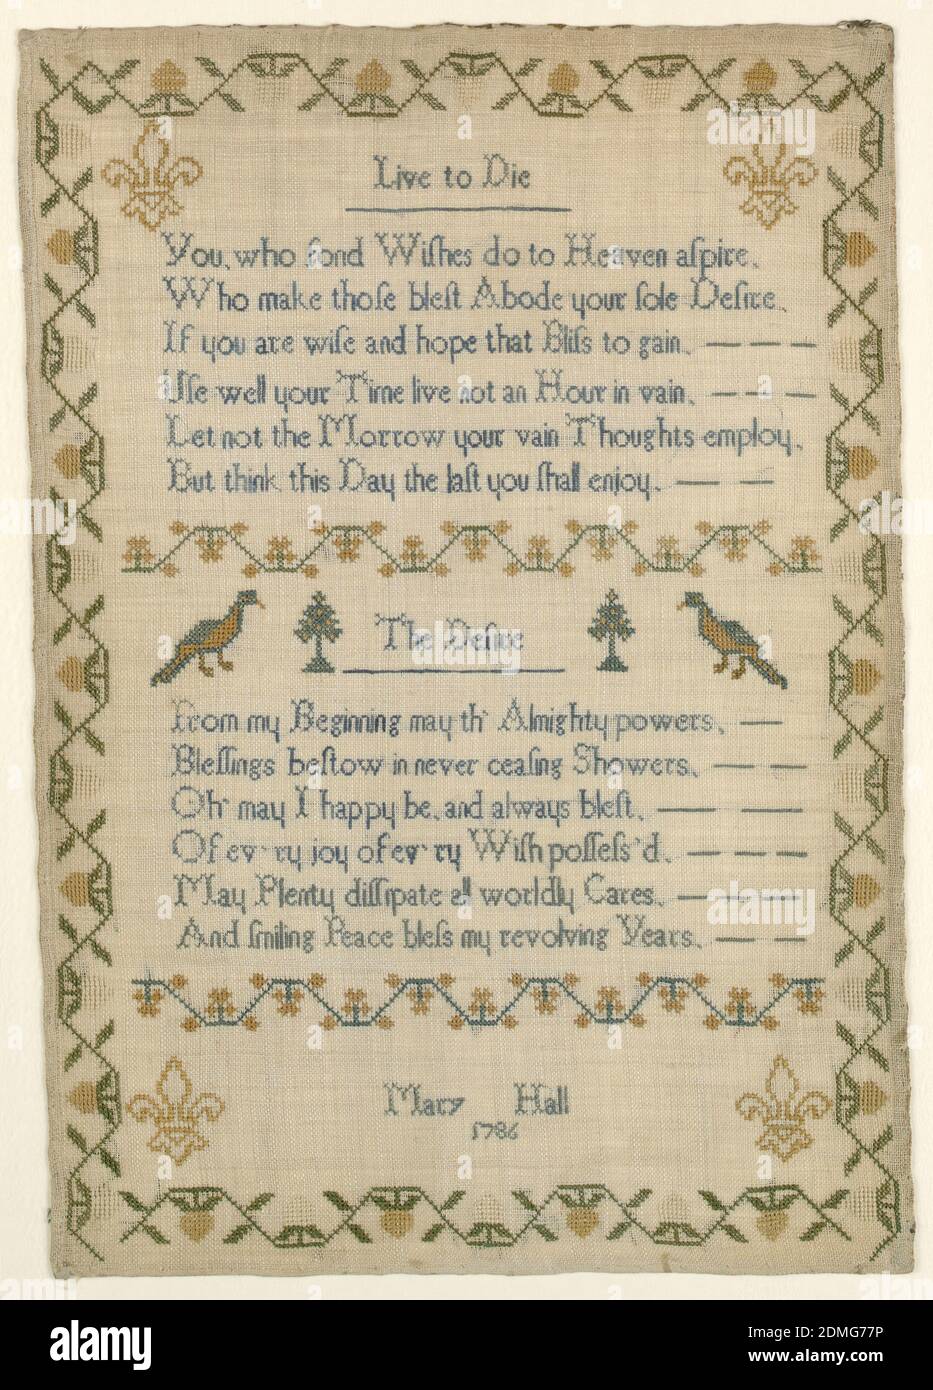 Live to Die
You, who fond Wiſhes do to Heaven aſpire,
Who make thoſe bleſt Abode your ſole Deſire,
If you are wiſe and hope that Bliſs to gain, — — —
Uſe well your Time live not an Hour in vain, — — —
Let not the Morrow your vain Thoughts employ,
But think this Day the laſt you ſhall enjoy, — —
The Deſire
From my Beginning may th' Almighty powers, —
Bleſſings beſtow in never ceaſing Showers, — —
Oh' may I happy be, and always bleſt, — — —
Of ev'ry joy of ev'ry Wiſh poſſeſs'd, — — —
May Plenty diſſipate all worldly Cares, — — —
And ſmiling Peace bleſs my revolving Years, — —
Mary Hall
1786
alamy
Image ID: 2DMG77P
www.alamy.com